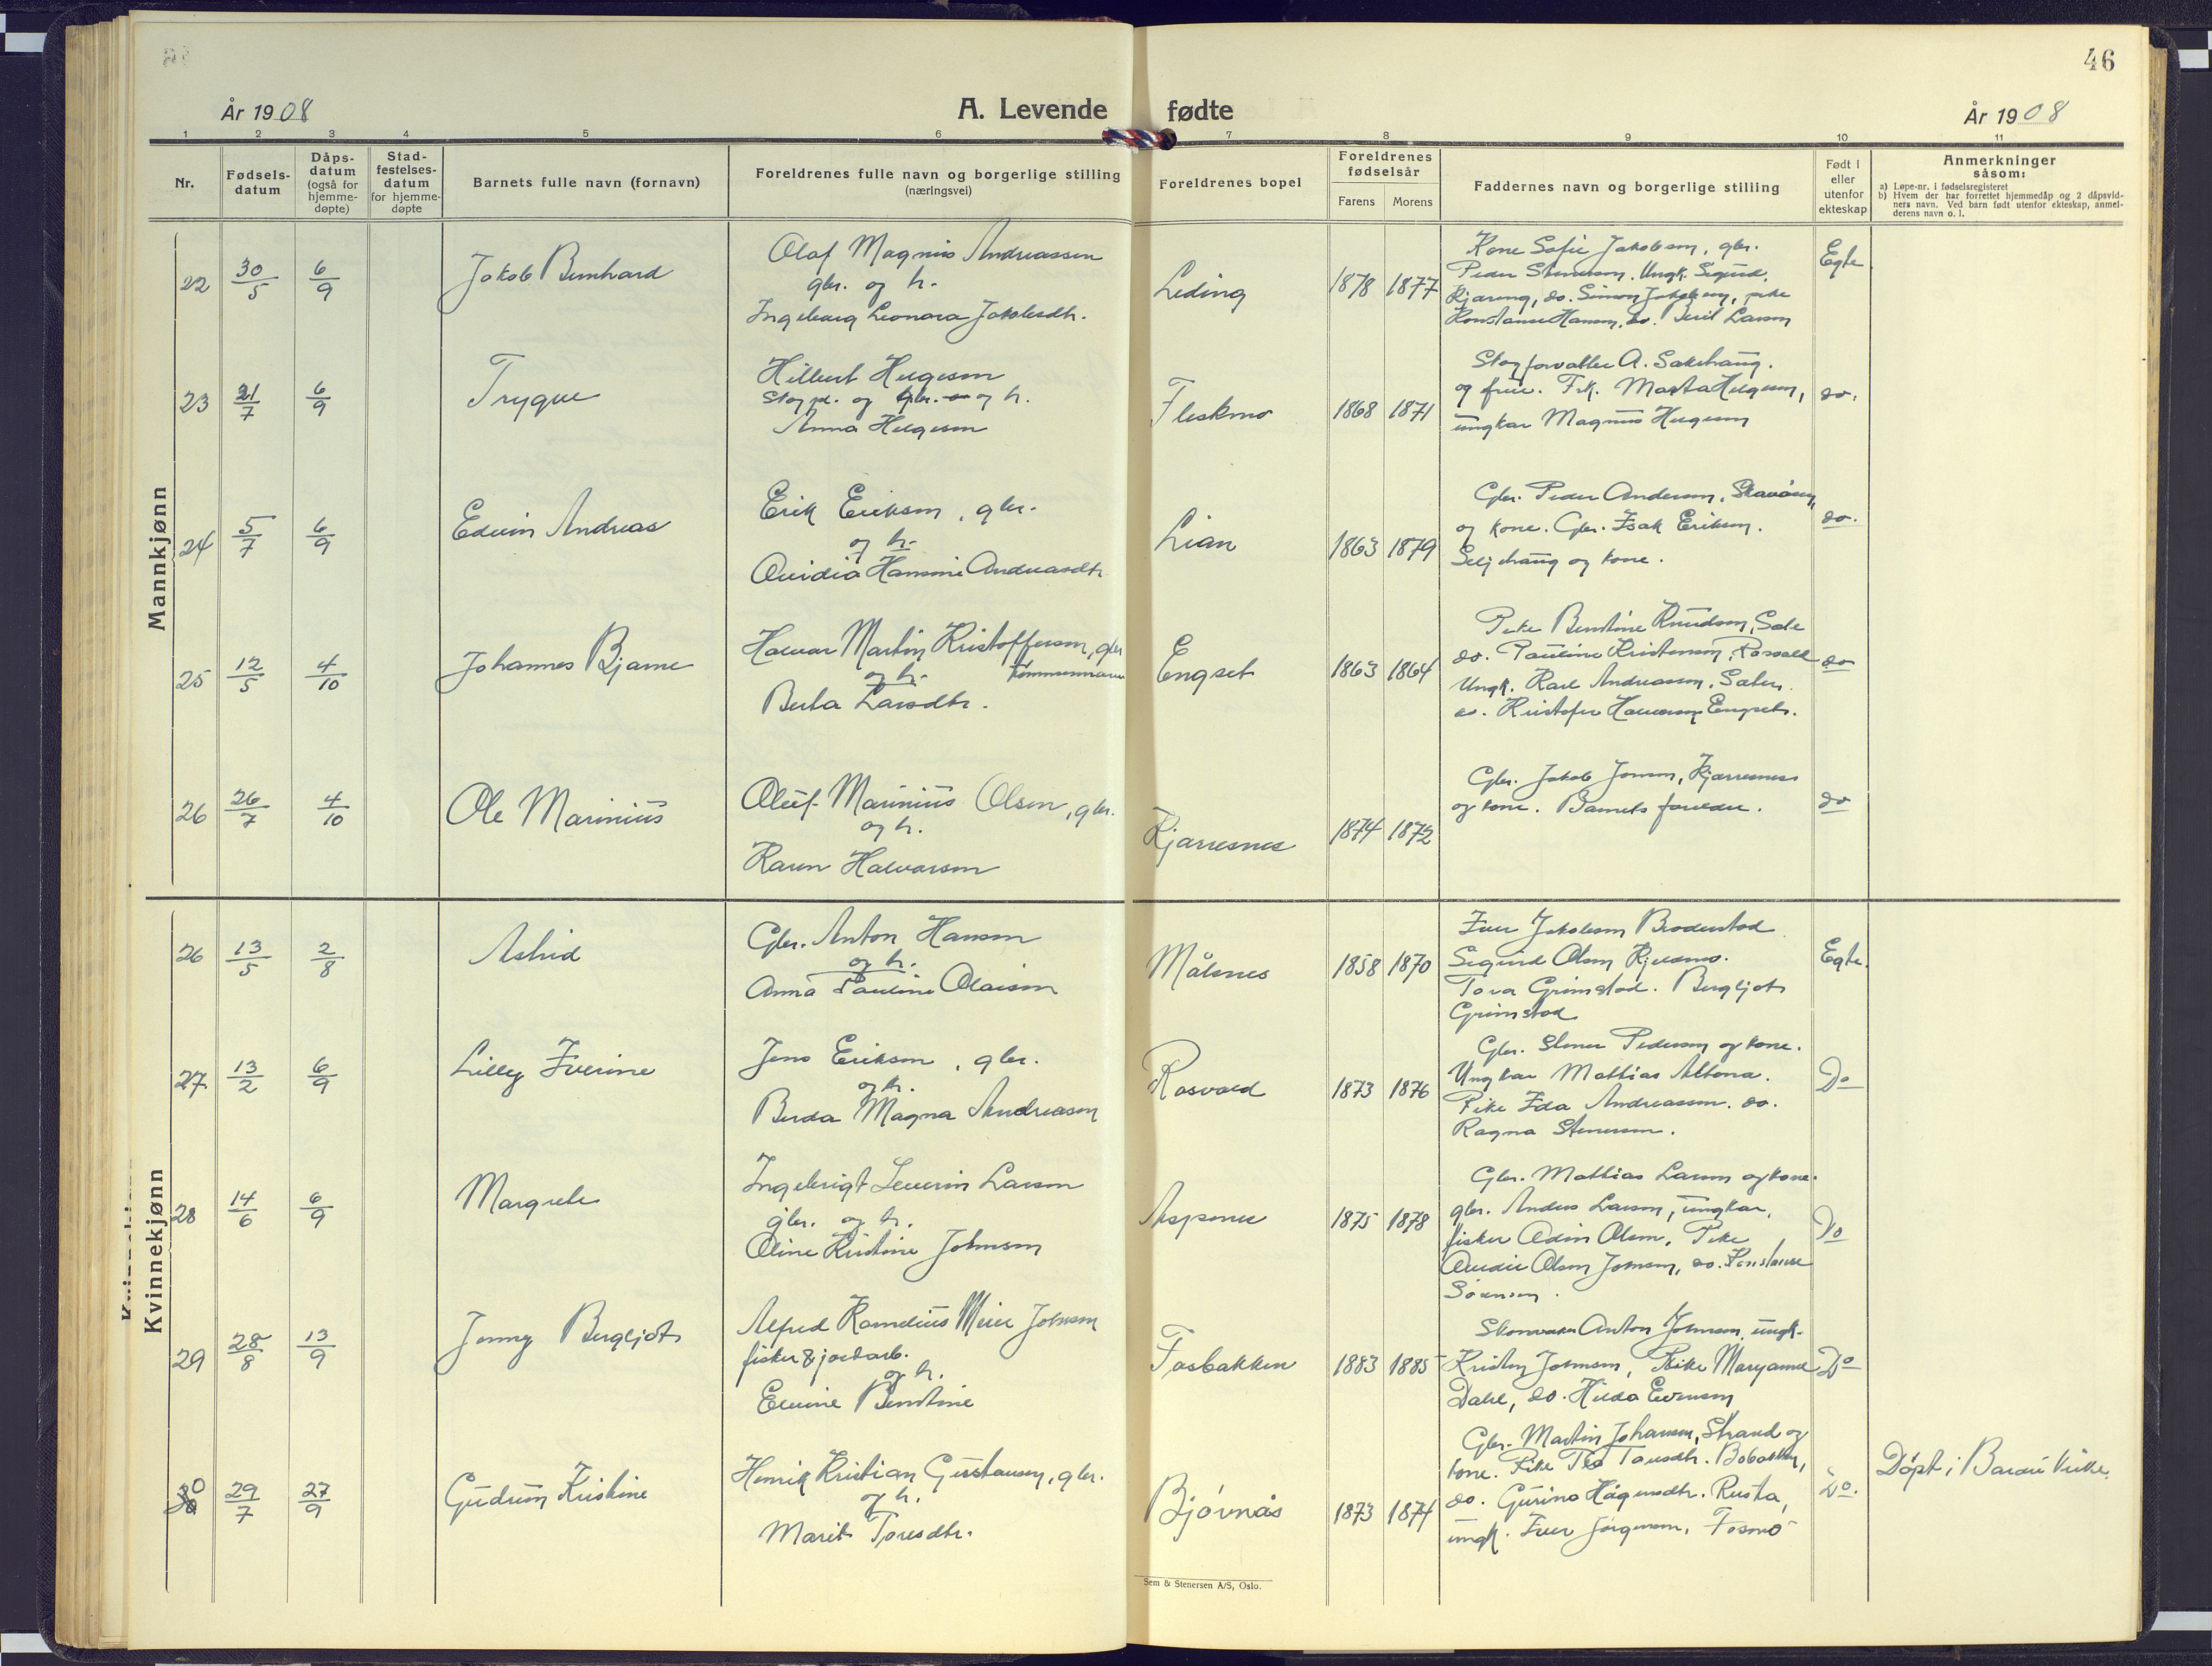 46
År 1908
A. Levende fødte
År 1908
1 2 3 4 5 6 7 8 9 10 11
Nr.
Fødsels-
datum
Dåps-
datum
(også for
hjemme-
døpte)
Stad-
festelses-
datum
for hjemme-
døpte
Barnets fulle navn (fornavn)
Foreldrenes fulle navn og borgerlige stilling
(næringsvei)
Foreldrenes bopel
Foreldrenes
fødselsår
Farens Morens
Faddernes navn og borgerlige stilling
Født i
eller
utenfor
ekteskap
Anmerkninger
såsom:
a) Løpe-nr. i fødselsregisteret
b) Hvem der har forrettet hjemmedåp og 2 dåpsvid-
ners navn. Ved barn født utenfor ekteskap, anmel-
derens navn o. l.
Mannkjønn
22 30/5 6/9 Jakob Bernhard
Olaf Magnus Andreassen
gbr. og h.
Ingeborg Leonora Jakobsdtr.
Leding 1878 1877
Kone Sofie Jakobsen, gbr.
Peder Stenersen. Ungk. Sigurd
Kjæreng, do. Simon Jakobsen, pike
Konstanse Hansen, do. Larsen
Egte
23 21/7 6/9 Trygve
Hilbert Helgesen
Skogpl. og gbr. og h.
Anna Helgesen
Fleskmo 1868 1871
Skogforvalter A. Sakshaug.
og frue. Frk. Marta Helgesen,
ungkar Magnus Helgesen
do.
24 5/7 6/9 Edvin Andreas
Erik Eriksen, gbr.
og h.
Ovidia Hansine Andreasdtr
Lian 1863 1879
Gbr. Peder Andersen,
og kone. Gbr. Isak Eriksen.
Seljehaug og kone.
do.
25 12/5 4/10 Johannes Bjarne
Halvar Martin Kristoffersen, gbr
og h. tømmermann
Berta Larsdtr.
Engset 1863 1864
Pike Berntine Knudsen,
do. Pauline Kristensen, Rosvall
Ungk. Karl Andreassen,
do. Kristofer Halvorsen Engset.
do
26 26/7 4/10 Ole Marinius
Oluf Marinius Olsen, gbr.
og h.
Karen Halvorsen
Kjærresnes 1874 1872
Gbr. Jakob Jonsen, Kjærresnes
og kone. Barnets foreldre.
do
Kvinnekjønn
26 13/5 2/8 Astrid
Gbr. Anton Hansen
og h.
Anna Pauline Olaisen
Målsnes 1858 1870
Iver Jakobsen Broderstad
Sigurd Olsen Kjelsmo.
Tora Grimstad. Bergljot
Grimstad
Egte.
27 13/2 6/9 Lilly Iverine
Jens Eriksen, gbr.
og h.
Berda Magna Andreasen
Rosvold 1873 1876
Gbr. Stener Pedersen og kone.
Ungkar Mathias Altona.
Pike Ida Andreassen. do.
Ragna Stenersen.
Do
28 14/6 6/9 Margrete
Ingebrigt Severin Larsen
gbr. og h.
Oline Kristine Johnsen
Aspenes 1875 1878
Gbr. Mathias Larsen og kone.
gbr. Anders Larsen, ungkar,
fisker Edin Olsen, Pike
Olsen Jonsen, do. Konstanse
Sørensen.
Do
29 28/8 13/9 Jenny Bergljot
Alfred Kornelius Meier Johnsen
fisker & jordarb.
og h.
Elvine Berntine
Fosbakken 1883 1885
Anton Johnsen, ungk.
Johnsen, Pike Maryanne
Dahl, do. Hilda Evensen
Do
30 29/7 27/9 Gudrun Kristine
Henrik Kristian Gustavsen, gbr.
og h.
Marit Toresdtr.
Bjørnås 1873 1874
Gbr. Martin Johansen, Strand og
kone. Pike Taresdtr. Bobakken,
do. Gurina Rusta,
ungk. Iver Jørgensen, Fosmo
Do.
Døpt i Bardu kirke.
Sem & Stenersen A/S, Oslo.